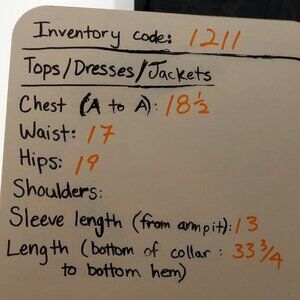 Inventory code: 1211
Tops/Dresses/Jackets
Chest (A to A): 18 1/2
Waist: 17
Hips: 19
Shoulders:
Sleeve length (from armpit): 13
Length (bottom of collar : 33 3/4
to bottom hem)